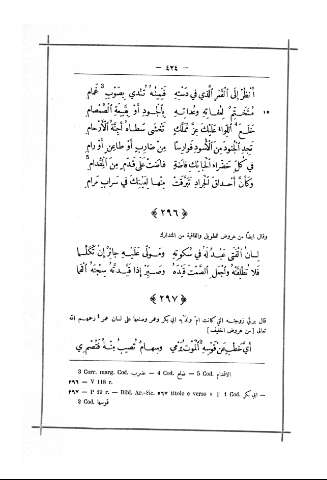 — ٤٢٤ —
أنظر إلى القمر الذي في دسته فيمينه تندي بصوب غمام
١٥ متختّم لعفاته وعداته بالجود أو بمنيّة الصمصام
خلع اللواء عليك عزّ تملّك تخشى سطاه أجنّة الأرحام
تجد الجنود من الأسود فوارسا من ضارب أو طاعن أو رام
في كلّ خضراء الجانك فاضة فاضت على قدم من الإقدام
وكأنّ أحداق الجراد تبرّقت منها لعينك في سراب ترام
﴿ ٢٩٦ ﴾
وقال ايضًا من عروض الطويل والقافية من المتدارك
لسان الفتى عبد له في سكوته ومولى عليه جائر إن تكلّما
فلا تطلقنه وٱجعل الصمت قيده وصيّر إذا قيّدته سجنه الفما
﴿ ٢٩٧ ﴾
قال يرثي زوجته التي كانت امّ ولديه ابي بكر وعمر وصنعها على لسان عمر ارحمهم الله
تعالى [ من عروض الخفيف ]
أيّ خطب عن قوسه الموت يرمي وسهام تصيب منه فتصمي
3 Corr. marg. Cod. ضرب — 4 Cod. خلع — 5 Cod. الاقدام
٢٩٦ — V 118 r.
٢٩٧ — P 19 r. — Bibl. Ar.-Sic. ٥٩٧ titolo e verso ١ | 1 Cod. ابي بكر —
2 Cod. قوسها